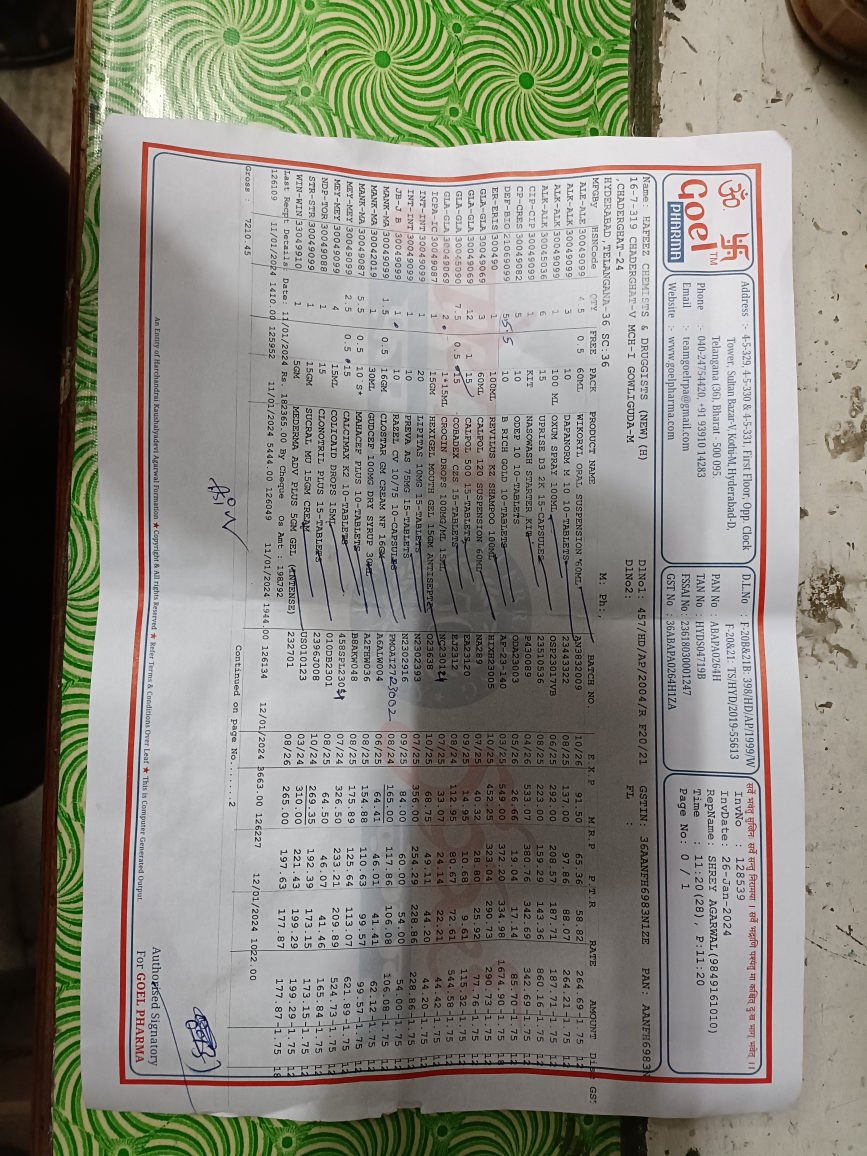 ॐ 卐
Goel™
PHARMA
Address :- 4-5-329, 4-5-330 & 4-5-331, First Floor, Opp. Clock
Tower, Sultan Bazar-V, Kothi-M, Hyderabad-D,
Telangana (36), Bharat - 500 095.
Phone :- 040-24754420, +91 93910 14283
Email :- teamgoelrpa@gmail.com
Website :- www.goelpharma.com
D.L.No : F-20B&21B: 398/HD/AP/1999/W
F-20&21: TS/HYD/2019-55613
PAN No : ABAPA0264H
TAN No : HYDS04719B
FSSAI No : 23618030001247
GST No : 36ABAPA0264H1ZA
InvNo : 128539
InvDate: 26-Jan-2024
RepName: SHREY AGARWAL(9849161010)
Time : 11:20(28), P:11:20
Page No: 0 / 1
Name: HAFEEZ CHEMISTS & DRUGGISTS (NEW) (H) DlNo1: 457/HD/AP/2004/R F20/21 GSTIN: 36AANFH6983N1ZE PAN: AANFH6983N
16-7-319 CHADERGHAT-V MCH-I GOWLIGUDA-M DlNo2: FL :
,CHADERGHAT-24
HYDERABAD,TELANGANA-36 SC:36 M: Ph:,
MFGBy HSNCode QTY FREE PACK PRODUCT NAME BATCH NO. E X P M.R.P P.T.R RATE AMOUNT Dis GST
ALE-ALE 30049099 4.5 0.5 60ML WIKORYL ORAL SUSPENSION 60ML AN3332009 10/26 91.50 65.36 58.82 264.69-1.75 12
ALK-ALK 30049099 3 10 DAPANORM M 10 10-TABLETS 23443322 08/25 137.00 97.86 88.07 264.21-1.75 12
ALK-ALK 30049099 1 100 ML OXUM SPRAY 100ML OSP23017VB 06/25 292.00 208.57 187.71 187.71-1.75 12
ALK-ALK 30045036 6 15 UPRISE D3 2K 15-CAPSULES 23510536 08/25 223.00 159.29 143.36 860.16-1.75 12
CIP-CIP 30049099 1 KIT NASOWASH STARTER KIT P430089 04/26 533.07 380.76 342.69 342.69-1.75 12
CP-CRES 30049082 5 10 ODEP 10 10-TABLETS ODA23003 05/26 26.66 19.04 17.14 85.70-1.75 12
DEF-BIO 21069099 5 10 B RICH GOLD 10-TABLETS AF-23-140 03/25 549.00 372.20 334.98 1674.90-1.75 18
ER-ERIS 300490 1 100ML REVILUS KZ SHAMPOO 100ML 10/25 452.25 323.04 290.73 290.73-1.75 12
GLA-GLA 30049069 3 60ML CALPOL 120 SUSPENSION 60ML NA289 07/25 40.32 28.80 25.92 77.76-1.75 12
GLA-GLA 30049069 12 1 15 CALPOL 500 15-TABLETS EA23120 09/25 14.95 10.68 9.61 115.32-1.75 12
GLA-GLA 30045090 7.5 0.5 15 COBADEX CZS 15-TABLETS EJ2312 08/24 112.95 80.67 72.61 544.58-1.75 12
GLA-GLA 30049069 2 1*15ML CROCIN DROPS 100MG/ML 15ML 07/25 33.07 24.14 22.21 44.42-1.75 12
ICPA-IC 30049087 1 15GM HEXIGEL MOUTH GEL 15GM ANTISEPTIC O23638 10/25 68.75 49.11 44.20 44.20-1.75 12
INT-INT 30049099 1 20 LIPITAS 10MG 15-TABLETS N2302393 07/25 356.00 254.29 228.86 228.86-1.75 12
INT-INT 30049099 1 10 PREVA AS 75MG 15-TABLETS N2302916 09/25 84.00 60.00 54.00 54.00-1.75 12
JB-J B 30049099 1 10 RAZEL CV 10/75 10-CAPSULES 08/24 165.00 117.86 106.08 106.08-1.75 12
MANK-MA 30049099 1.5 0.5 16GM CLOSTAR GM CREAM NF 16GM A6ALW004 06/25 64.41 46.01 41.41 62.12-1.75 12
MANK-MA 30042019 1 30ML GUDCEF 100MG DRY SYRUP 30ML A2FHW036 08/25 154.88 110.63 99.57 99.57-1.75 12
MANK-MA 30049087 5.5 0.5 10'S* MAHACEF PLUS 10-TABLETS B8AKW048 08/25 175.89 125.64 113.07 621.89-1.75 12
MEY-MEY 30049099 2.5 0.5 15 CALCIMAX K2 10-TABLETS 07/24 326.50 233.21 209.89 524.73-1.75 12
MEY-MEY 30049099 4 15ML COLICAID DROPS 15ML 010DB2301 08/25 64.50 46.07 41.46 165.84-1.75 12
NDP-TOR 30049088 1 15 CLONOTRIL PLUS 15-TABLETS 2396J008 10/24 269.35 192.39 173.15 173.15-1.75 12
STR-STR 30049099 1 15GM SUCRAL MU 15GM CREAM US010123 03/24 310.00 221.43 199.29 199.29-1.75 12
WIN-WIN 33049910 1 5GM MEDERMA ADV PLUS 5GM GEL (INTENSE) 232701 08/26 265.00 197.63 177.87 177.87-1.75 18
Last Recpt Details: Date: 11/01/2024 Rs. 182365.00 By Cheque Os Amt : 198792
126109 11/01/2024 1410.00 125952 11/01/2024 5444.00 126049 11/01/2024 1944.00 126134 12/01/2024 3663.00 126227 12/01/2024 1022.00
Continued on page No.......2
Gross : 7210.45
Authorised Signatory
For GOEL PHARMA
An Entity of Harcharandrai Kaushalyadevi Agarwal Formation ★ Copyright & All rights Reserved ★ Refer Terms & Conditions Over Leaf ★ This is Computer Generated Output.